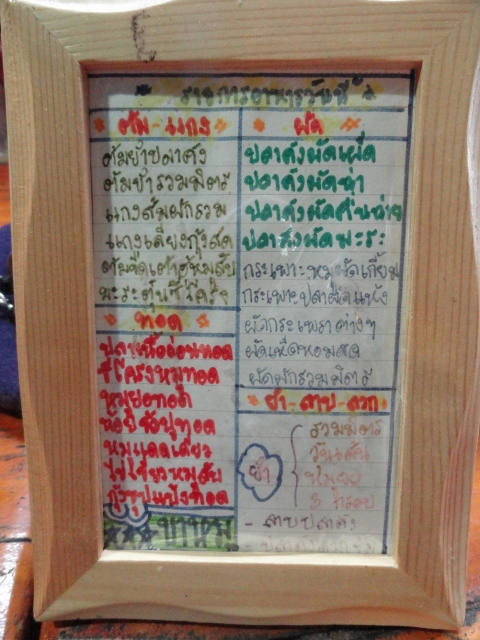 รายการอาหารวันนี้
ต้ม-แกง
ต้มยำปลาคัง
ต้มยำรวมมิตร
แกงส้มผักรวม
แกงเลียงกุ้งสด
ต้มจืดเต้าหู้หมูสับ
มะระตุ๋นซี่โครง
ทอด
ปลาเนื้ออ่อนทอด
ซี่โครงหมูทอด
หมูยอทอด
ทอด
หมูแดดเดียว
ไข่เจียวหมูสับ
กุ้งชุปแป้งทอด
ขาหมู
ผัด
ปลาคังผัดเผ็ด
ปลาคังผัดฉ่า
ปลาคังผัดคื่นฉ่าย
ปลาคังผัดมะระ
กระเพาะหมูผัดเกี้ยม
กระเพาะปลาผัดแห้ง
ผัดกระเพราต่างๆ
ผัดเห็ดหอมสด
ผัดผักรวมมิตร
ยำ-ลาบ-ลวก
ยำ
รวมมิตร
วุ้นเส้น
หมูยอ
3 กรอบ
- ลาบปลาคัง